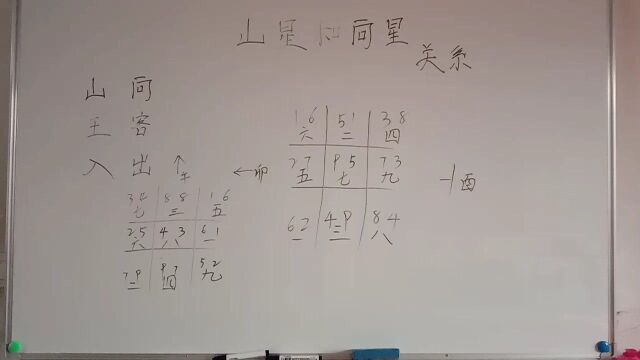 山星和向星
关系
山 向
主 客
入 出
1 6 5 1 3 8
六 二 四
2 7 9 5 7 3
五 七 九
6 2 4 9 8 4
一 三 八
←卯
酉
8 8 1 6
七 三 五
2 5 4 3 6 1
六 八 一
7 9 9 7 5 2
二 四 九